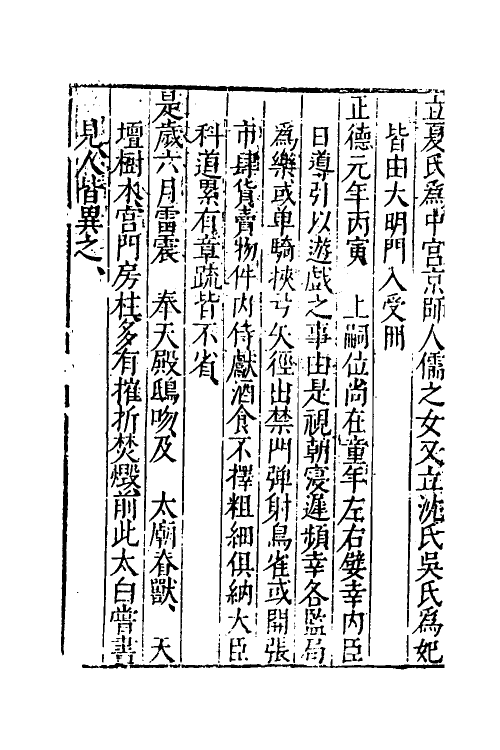 立夏氏為中宮京師人儒之女又立沈氏吳氏為妃
皆由大明門入受冊
正德元年丙寅　上嗣位尚在童年左右嬖幸內臣
日導引以遊戲之事由是視朝寖遲頻幸各監局
為樂或单騎挾弓矢徑出禁門彈射鳥雀或開張
市肆貨賣物件內侍獻酒食不擇粗細俱納大臣
科道累有章疏皆不省
是歲六月雷震　奉天殿鴟吻及　太廟脊獸、天
壇樹木宮門房柱多有摧折焚燬前此太白嘗晝
見人皆異之、